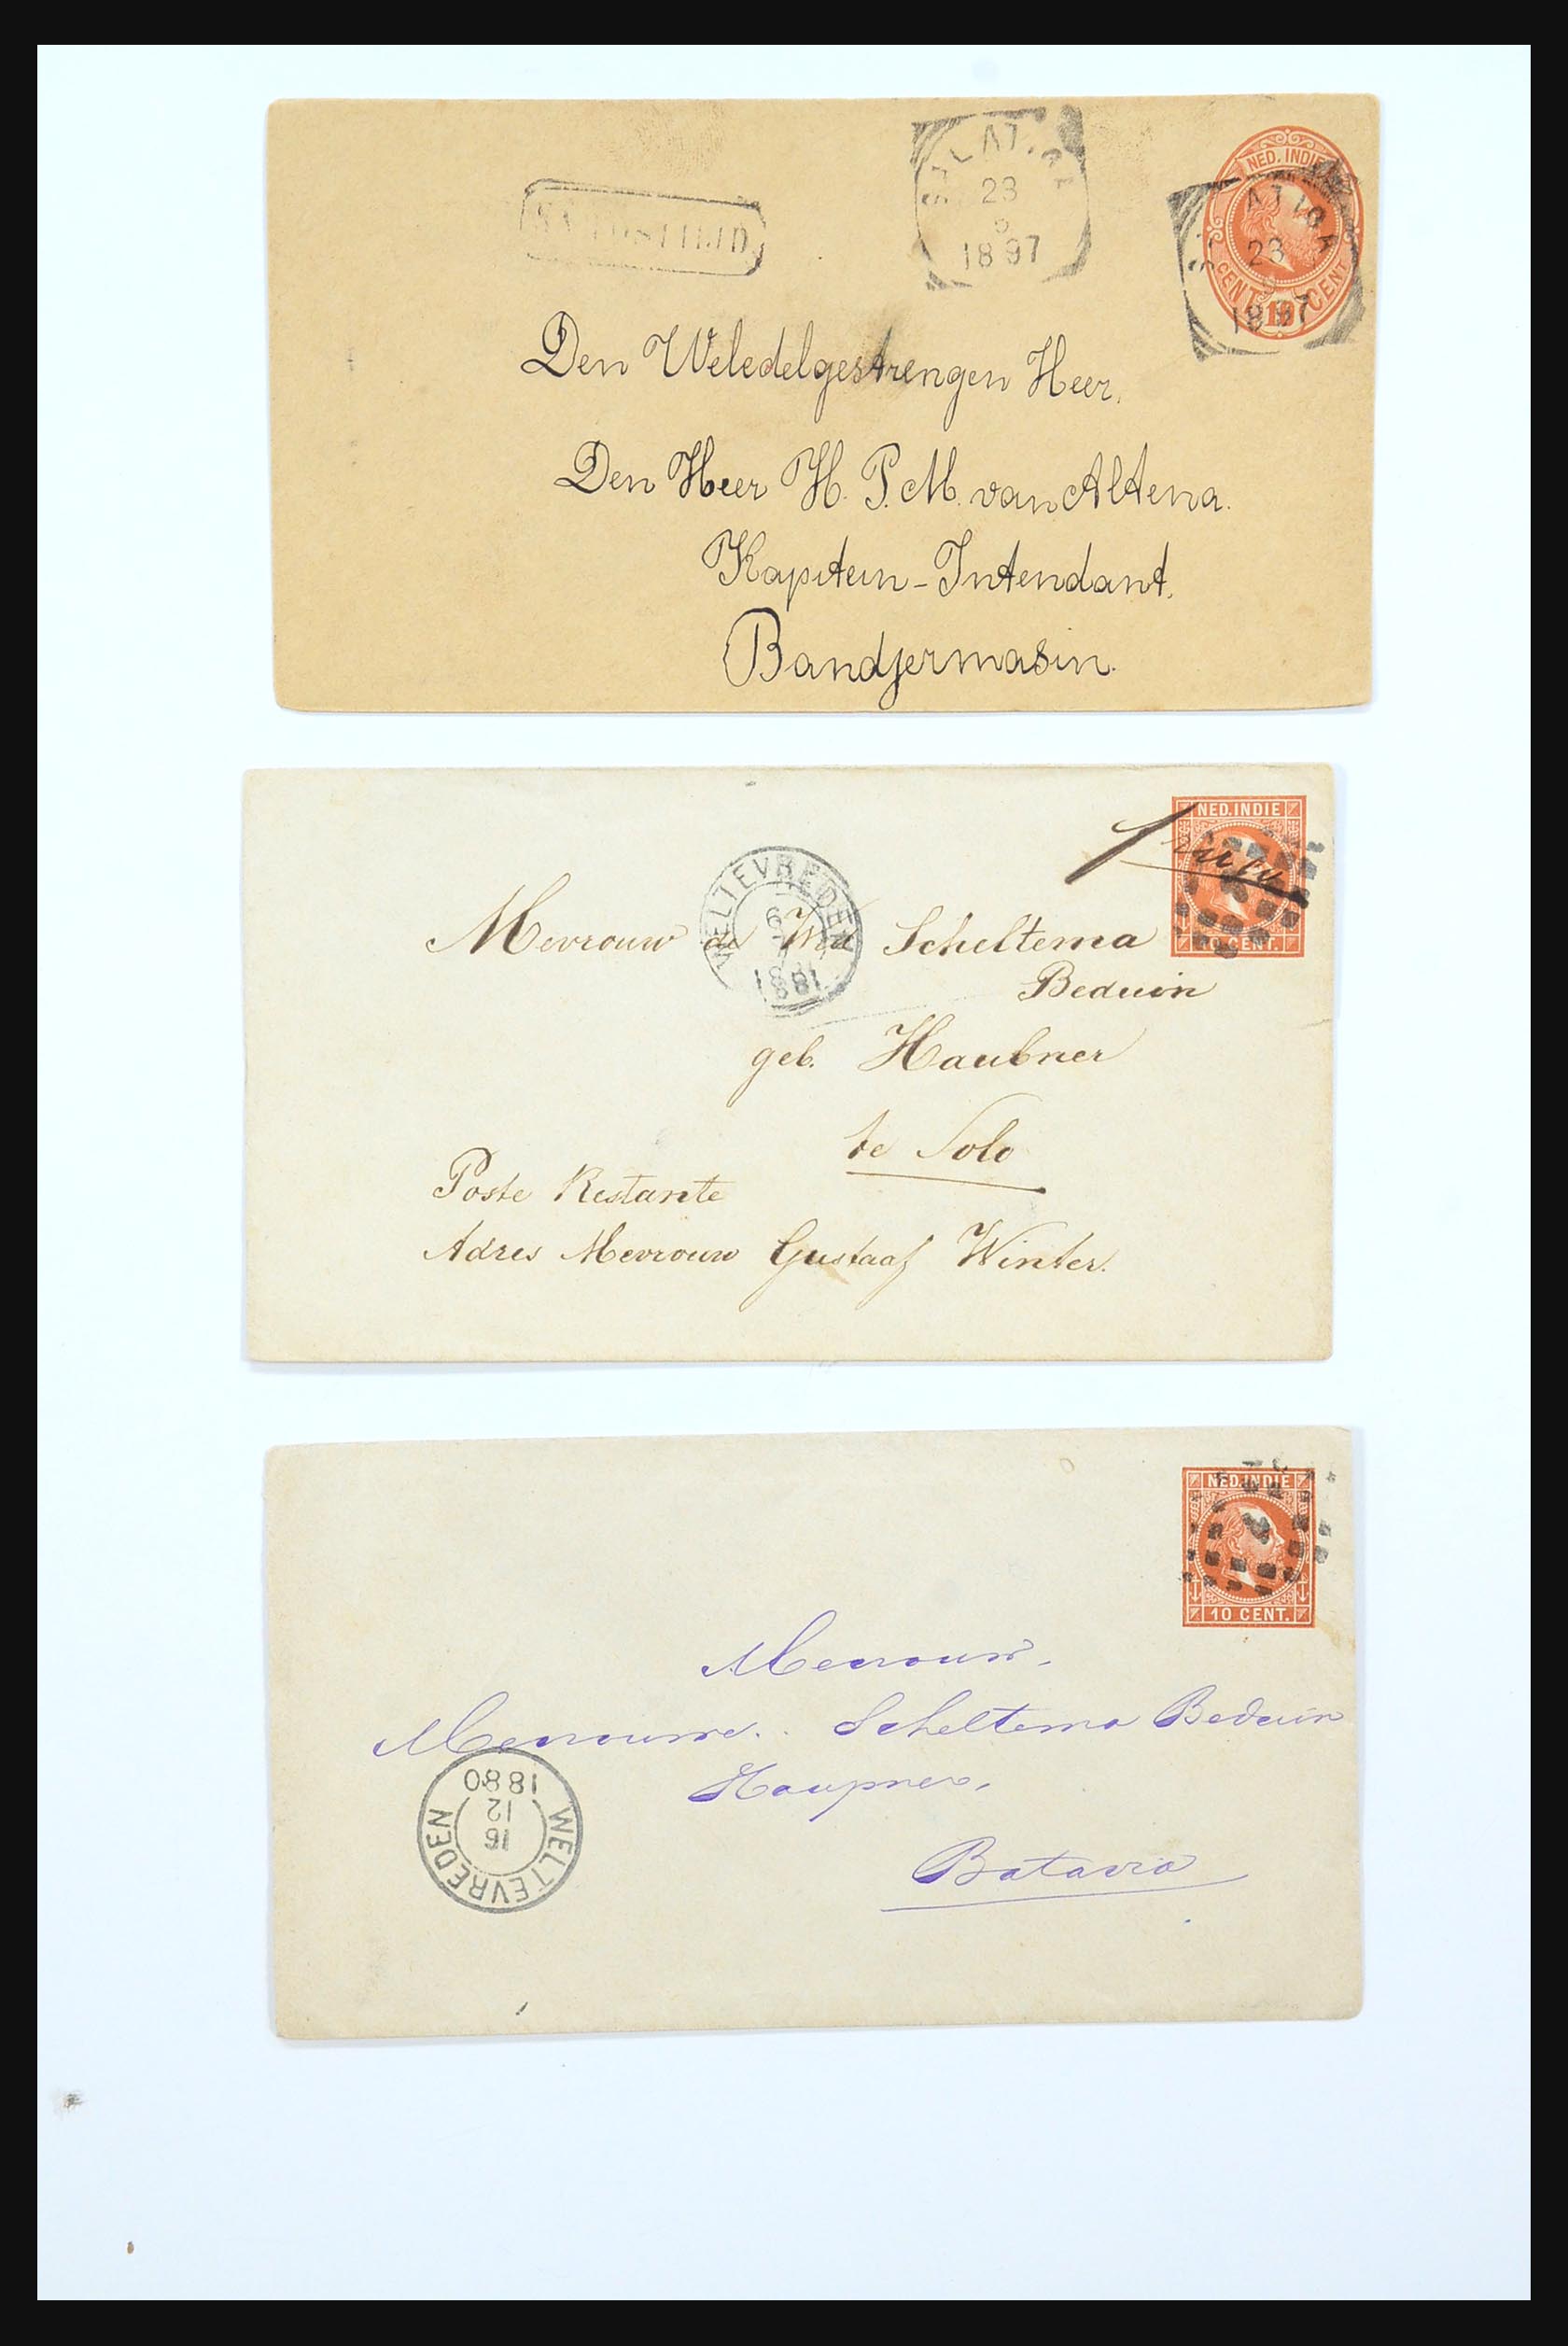 NED. INDIE
SALATIGA
23
1897
ATIGA
23
1897
CENT 10 CENT
Den Weledelgestrengen Heer.
Den Heer H. P. M. van Altena.
Kapitein-Intendant.
Bandjermasin.
NED. INDIE
franco
10 CENT.
WELTEVREDEN
1881
Mevrouw de Wed Scheltema
Beduin
geb. Haubner
te Solo
Poste Restante
Adres Mevrouw Gustaaf Winter.
NED. INDIE
10 CENT.
Mevrouw.
Mevrouwe. Scheltema Beduin
Haupner,
Batavia
WELTEVREDEN
16
12
1880